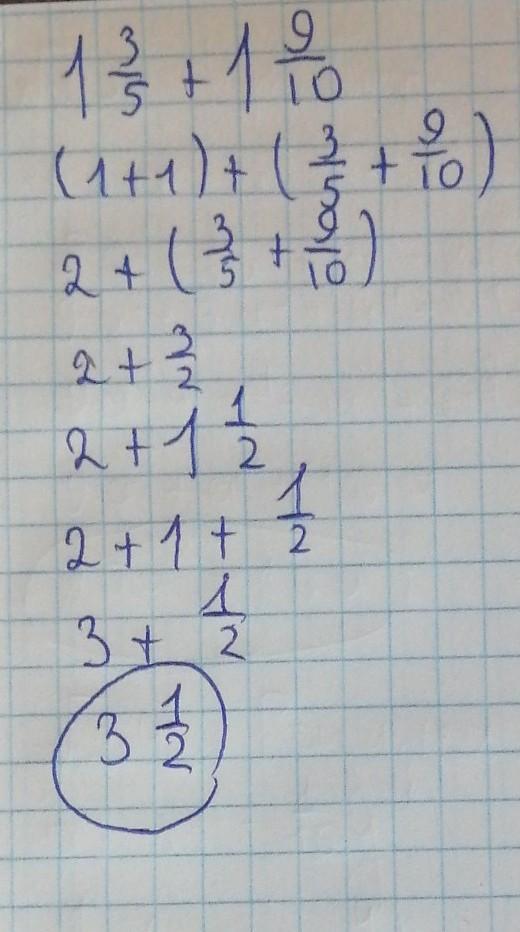 1 3/5 + 1 9/10
(1+1) + (3/5 + 9/10)
2 + (3/5 + 9/10)
2 + 3/2
2 + 1 1/2
2 + 1 + 1/2
3 + 1/2
3 1/2